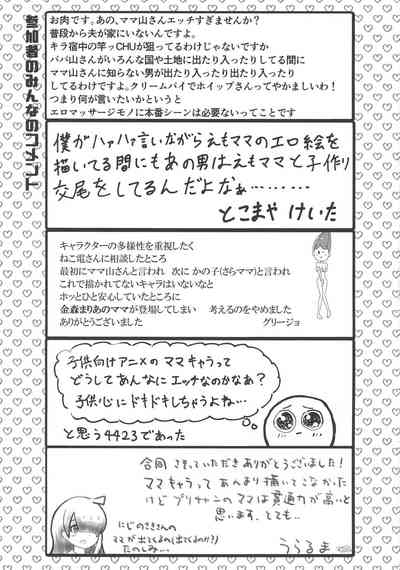 執筆者のみなさんのコメント
お肉です。あの、ママ山さんエッチすぎませんか？
普段から夫が家にいないんですよ。
キラ宿中の竿ッCHUが狙ってるわけじゃないですか
パパ山さんがいろんな国や土地に出たり入ったりしてる間に
ママ山さんに知らない男が出たり入ったり出たり入ったり
してるわけですよ。クリームパイでホイップさんってやかましいわ！
つまり何が言いたいかというと
エロマッサージモノに本番シーンは必要ないってことです
僕がハァハァ言いながらえもママのエロ絵を
描いてる間にもあの男はえもママと子作り
交尾をしてるんだよなぁ………
とこまや けいた
キャラクターの多様性を重視したく
ねこ電さんに相談したところ
最初にママ山さんと言われ 次に かの子(さらママ)と言われ
これで描かれてないキャラはいないなと
ホッとひと安心していたところに
金森まりあのママが登場してしまい 考えるのをやめました
ありがとうございました グリージョ
子供向けアニメの ママキャラって
どうしてあんなにエッチなのかなぁ？
子供心にドキドキしちゃうよね…
と思う4423であった
合同 させていただきありがとうございました！
ママキャラって あんまり描いてこなかった
けど プリチャンのママは貫通力が高いと
思います、とても…
うらるま
にじのさきさんの
ママが出てくるの(出てくるのか?)
たのしみ…